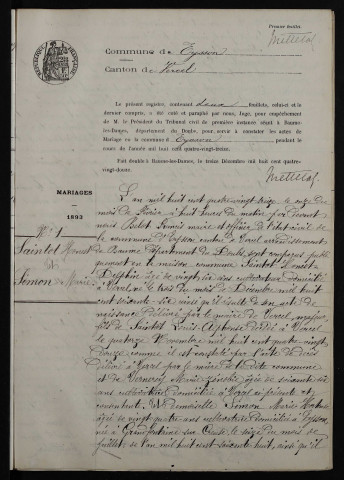 Premier feuillet.
Commune de Eysson
Canton de Vercel
RÉPUBLIQUE FRANÇAISE
Le présent registre, contenant deux feuillets, celui-ci et le
dernier compris, a été coté et paraphé par nous, Juge, pour empêchement
de M. le Président du Tribunal civil de première instance séant à Baume-
les-Dames, département du Doubs, pour servir à constater les actes de
Mariage de la commune d'Eysson pendant le
cours de l'année mil huit cent quatre-vingt-treize.
Fait double à Baume-les-Dames, le treize Décembre mil huit cent quatre-
vingt-douze.
MARIAGES
1893
N° 1
Saintot
et
Simon Marie
L'an mil huit cent quatre-vingt treize, le
mois de Février à huit heures du matin par devant
nous maire et officier de l'état civil de
la commune d'Eysson canton de Vercel arrondissement
de Baume département du Doubs, sont comparus publi-
quement en la maison commune Saintot
Delphin âgé de vingt six ans cultivateur domicilié
à Vercel né le trois du mois de Décembre mil huit
cent soixante-six ainsi qu'il résulte de son acte de
naissance délivré par le maire de Vercel majeur
fils de Saintot Louis Alphonse décédé à Vercel
le quatorze Novembre mil huit cent quatre-vingt
douze comme il est constaté par l'acte de décès
délivré par le maire de la dite commune
et de Vernerey Marie âgée de soixante six
ans domiciliée à Vercel ci présente et
consentante. Et Demoiselle Simon Marie
âgée de vingt quatre ans domiciliée à Eysson,
née à le seize du mois de
Juillet de l'an mil huit cent soixante huit, ainsi qu'il